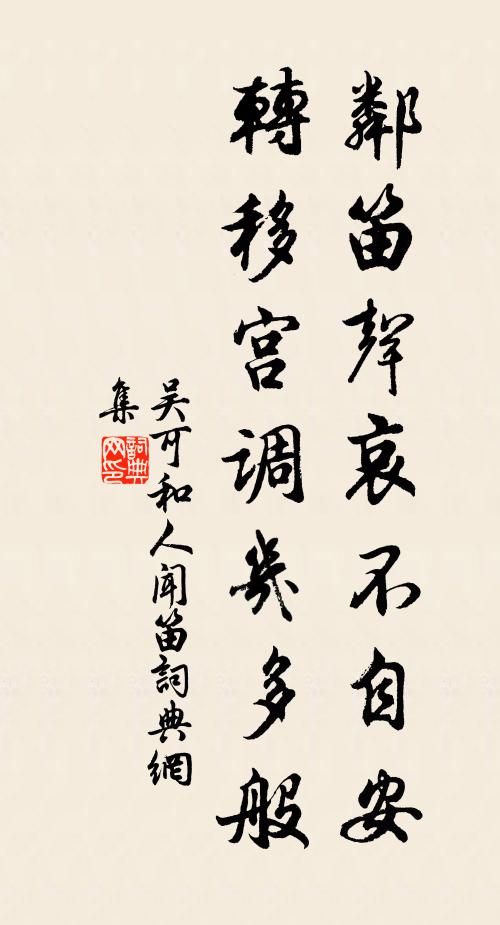 鄰笛聲哀不自安
轉移宫調幾多般
吴可和人聞笛詞典網
集
詞典網印